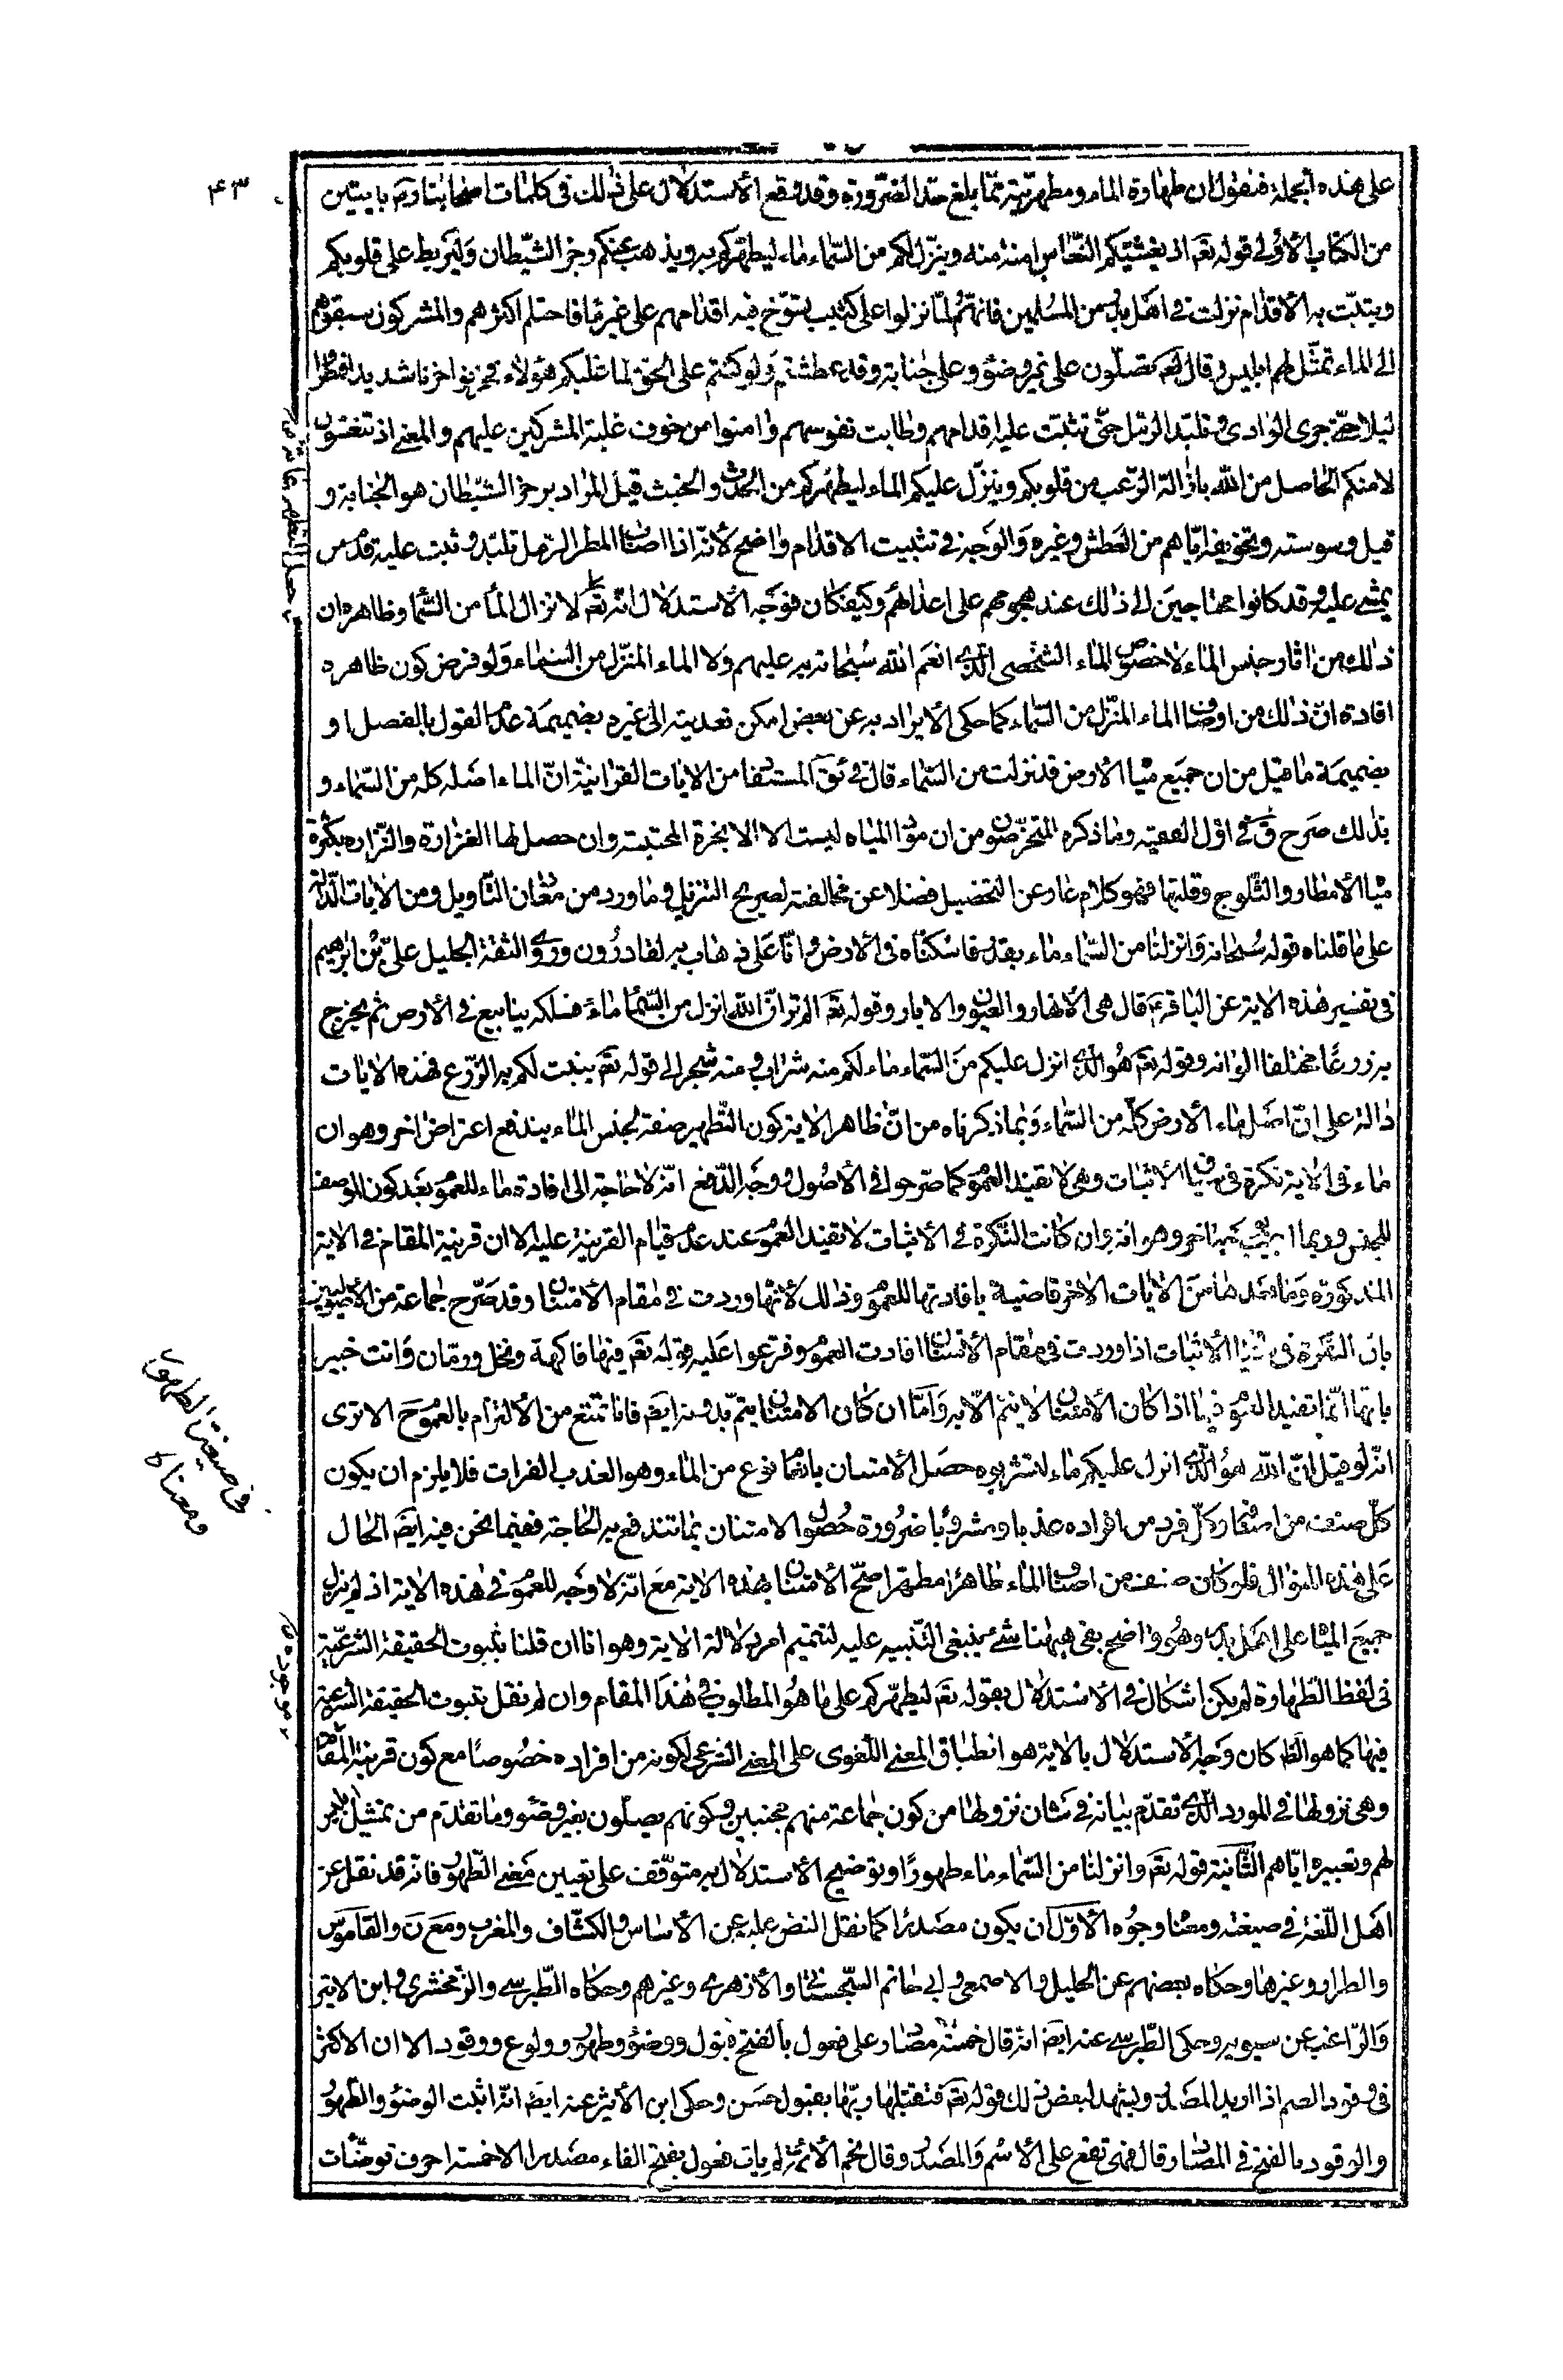 ۴۳
على هذه الجملة فنقول ان طهارة الماء ومطهريته ممّا بلغ حدّ الضّرورة وقد وقع الأستدلال على ذلك فى كلمات اصحابنا ره بايتين
من الكتاب الأولى قوله تعم اذ يغشّيكم النّعاس امنة منه وينزّل لكم من السّماء ماء ليطهّركم به ويذهب عنكم رجز الشّيطان وليربط على قلوبكم
ويثبّت به الأقدام نزلت فى اهل بدر من المسلمين فانهم لمّا نزلوا على كثيب يتوخ فيه اقدامهم على غير ماء فاحتلم اكثرهم والمشركون سبقوهم
الى الماء تمثّل لهم ابليس وقال لهم تصلّون على غير وضوء وعلى جنابة وقد عطشتم ولو كنتم على الحق لما غلبكم هؤلاء فحزنوا حزنا شديدا فمطروا
ليلا حتّى جرى الوادى وتلبّد الرّمل حتّى تثبّت عليه اقدامهم وطابت نفوسهم وامنوا من خوف غلبة المشركين عليهم والمعنى اذ تنعسون
لامنكم الحاصل من الله بازالة الرّعب من قلوبكم وينزّل عليكم الماء ليطهّركم من الحدث والخبث قيل المراد برجز الشيّطان هو الجنابة و
قيل وسوسته وتخويفه ايّاهم من العطش وغيره والوجه فى تثبيت الاقدام واضح لأنّه اذا اصاب المطر الرّمل تلبّد وثبت عليه قدم من
يمشى عليه وقد كانوا محتاجين الى ذلك عند هجومهم على اعدائهم وكيف كان فوجه الأستدلال انّه تعم لانزال الماء من السّماء وظاهره ان
ذلك من اثار جنس الماء لا خصوص الماء الشخصى الّذى انعم الله سبحانه به عليهم ولا الماء المنزّل من السّماء ولو فرض كون ظاهره
افادة انّ ذلك من اوصاف الماء المنزّل من السّماء كما حكى الايراد به عن بعض امكن تعديته الى غيره بضميمة عدم القول بالفصل او
بضميمة ما قيل من ان جميع مياه الأرض قد نزلت من السّماء قال فى ئق المستفا من الايات القرانيّة انّ الماء اصله كله من السّماء و
بذلك صرح ق فى اوّل الفقيه وما ذكره المتخرّصون من ان موادّ المياه ليست الا الابخرة المحتبسة وان حصل لها الغزارة والنّزارة بكثرة
مياه الأمطار والثّلوج وقلّتها فهو كلام عار عن التحصيل فضلا عن مخالفته لصريح التنزيل وما ورد من معان التّاويل ومن الايات الدّالة
على ما قلناه قوله سبحانه وانزلنا من السّماء ماء بقدر فاسكنّاه فى الأرض وانّا على ذهاب به لقادرون وروى الثقة الجليل علىّ بن ابرهيم
فى تفسير هذه الاية عن الباقر ع قال هى الأنهار والعيون والابار وقوله تعم الم تر انّ الله انزل من السّماء ماء فسلكه ينابيع فى الأرض ثم يخرج
به زرعا مختلفا الوانه وقوله تعم هو الّذى انزل عليكم من السّماء ماء لكم منه شراب ومنه شجر الى قوله تعم ينبت لكم به الزّرع فهذه الايات
دالة على انّ اصل ماء الأرض كلّه من السّماء وبما ذكرناه من انّ ظاهر الاية كون التّطهير صفة لجنس الماء يندفع اعتراض اخر وهو ان
ماء فى الاية نكرة فى سياق الاثبات وهى لا تفيد العموم كما صرّحوا فى الأصول ووجه الدّفع انّه لا حاجة الى افادة ماء للعموم بعد كون الوصف
للجنس وربما اجيب عنه باخر وهو انه وان كانت النّكرة فى الأثبات لا تفيد العموم عند عدم قيام القرينة عليه الا ان قرينة المقام فى الاية
المذكورة وما بعدها من الايات الاخر قاضية بافادتها للعموم وذلك لأنّها وردت فى مقام الأمتنان وقد صرّح جماعة من الأصوليين
بان النّكرة فى سياق الأثبات اذا وردت فى مقام الأمتنان افادت العموم وفرعوا عليه قوله تعم فيها فاكهة ونخل ورمّان وانت خبير
بانها انّما تفيد العموم فيما اذا كان الأمتنان لا يتمّ الّا به وامّا ان كان الامتنان يتم بدونه ايضا فانا نمنع من الألتزام بالعموم ح الا ترى
انّه لو قيل انّ الله هو الّذى انزل عليكم ماء لتشربوه حصل الأمتنان بانعام نوع من الماء وهو العذب الفرات فلا يلزم ان يكون
كلّ صنف من اصنافه وكلّ فرد من افراده عذبا ومشروبا ضرورة حصول الامتنان بما تندفع به الحاجة ففيما نحن فيه ايضا الحال
على هذا المنوال فلو كان صنف من اصناف الماء طاهرا مطهّرا صحّ الأمتنان بهذه الاية مع انّه لا وجه للعموم فى هذه الاية اذ لم ينزل
جميع المياه على اهل بدر وهو واضح بقى هيهنا شىء ينبغى التّنبيه عليه لتتميم امر دلالة الاية وهو انا ان قلنا بثبوت الحقيقة الشرعيّة
فى لفظ الطّهارة لم يكن اشكال فى الأستدلال بقوله تعم ليطهّركم على ما هو المطلوب فى هذا المقام وان لم نقل بثبوت الحقيقة الشرعية
فيها كما هو الظ كان وجه الأستدلال بالاية هو انطباق المعنى اللّغوى على المعنى الشرعى لكونه من افراده خصوصا مع كون قرينة المقام
وهى نزولها فى المورد الّذى تقدّم بيانه فى شان نزولها من كون جماعة منهم مجنبين وكونهم يصلّون بغير وضوء وما تقدّم من تمثيل ابليس
لهم وتعييره ايّاهم الثّانية قوله تعم وانزلنا من السّماء ماء طهورا وتوضيح الأستدلال به متوقّف على تعيين معنى الطّهور فانّه قد نقل عن
اهل اللّغة فى صيغته ومعناه وجوه الأوّل ان يكون مصدرا كما نقل النص عليه عن الأساس والكشّاف والمغرب ومعرن والقاموس
والطراز وغيرها وحكاه بعضهم عن الخليل والاصمعى وابى حاتم السّجستانى والأزهرى وغيرهم وحكاه الطّبرسى والزّمخشرى وابن الاثير
والرّاغب عن سيبويه وحكى الطّبرسى عنه ايضا انّه قال خمسة مصادر على فعول بالفتح قبول ووضوء وطهور وولوع ووقود الا ان الاكثر
فى وقود الضم اذا اريد المصدر ويشهد لبعض ذلك قوله تعم فتقبّلها ربّها بقبول حسن وحكى ابن الأثير عنه ايضا انّه اثبت الوضوء والطّهور
والوقود بالفتح فى المصادر وقال فهى تقع على الأسم والمصدر وقال نجم الأئمّة لم يات فعول بفتح الفاء مصدرا الا خمسة احرف توضّات
فى صيغة الطهور
ومعناه